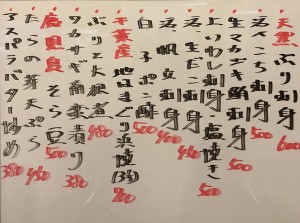 天然ぶり刺身 600
活〆こち刺身 500
生マカジキ刺身 500
上いわし刺身・塩焼き 500
活生だこ刺身 450
活帆立刺身 400
白子ポン酢 500
千葉産地はまぐり浜焼(3ケ) 700
ぶり大根煮 480
ワカサギ唐揚 380
鹿児島そら豆 500
たらの芽天ぷら 450
アスパラバター炒め 380